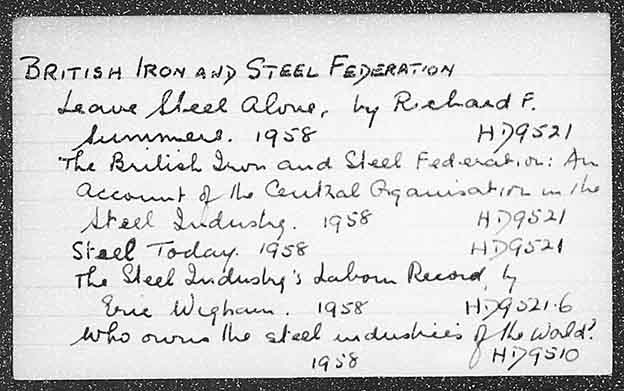 BRITISH IRON AND STEEL FEDERATION
Leave Steel Alone, by Richard F.
Summers. 1958 HD9521
The British Iron and Steel Federation: An
Account of the Central Organisation in the
Steel Industry. 1958 HD9521
Steel Today. 1958 HD9521
The Steel Industry's Labour Record, by
Eric Wigham. 1958 HD9521.6
Who owns the steel industries of the World?
1958 HD9510